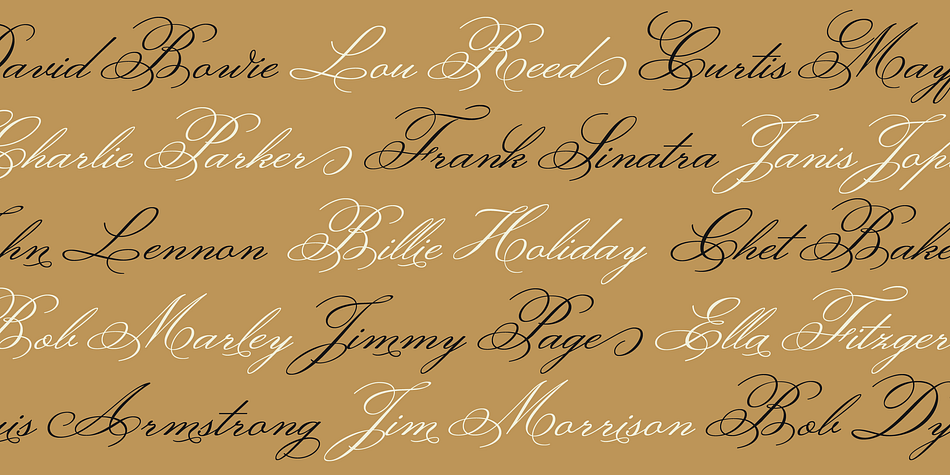 David Bowie Lou Reed Curtis May
Charlie Parker Frank Sinatra Janis Jop
hn Lennon Billie Holiday Chet Bake
Bob Marley Jimmy Page Ella Fitzger
uis Armstrong Jim Morrison Bob Dy